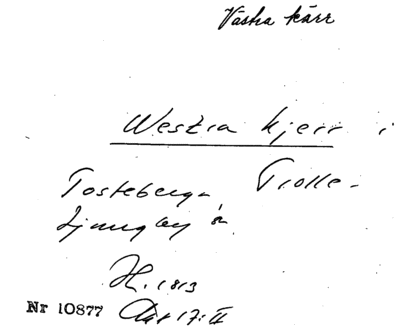 Västra kärr
Westra kjerr i
Tosteberga Trolle-
Ljungby sn
H. 1813
Nr 10877 Akt 17: II